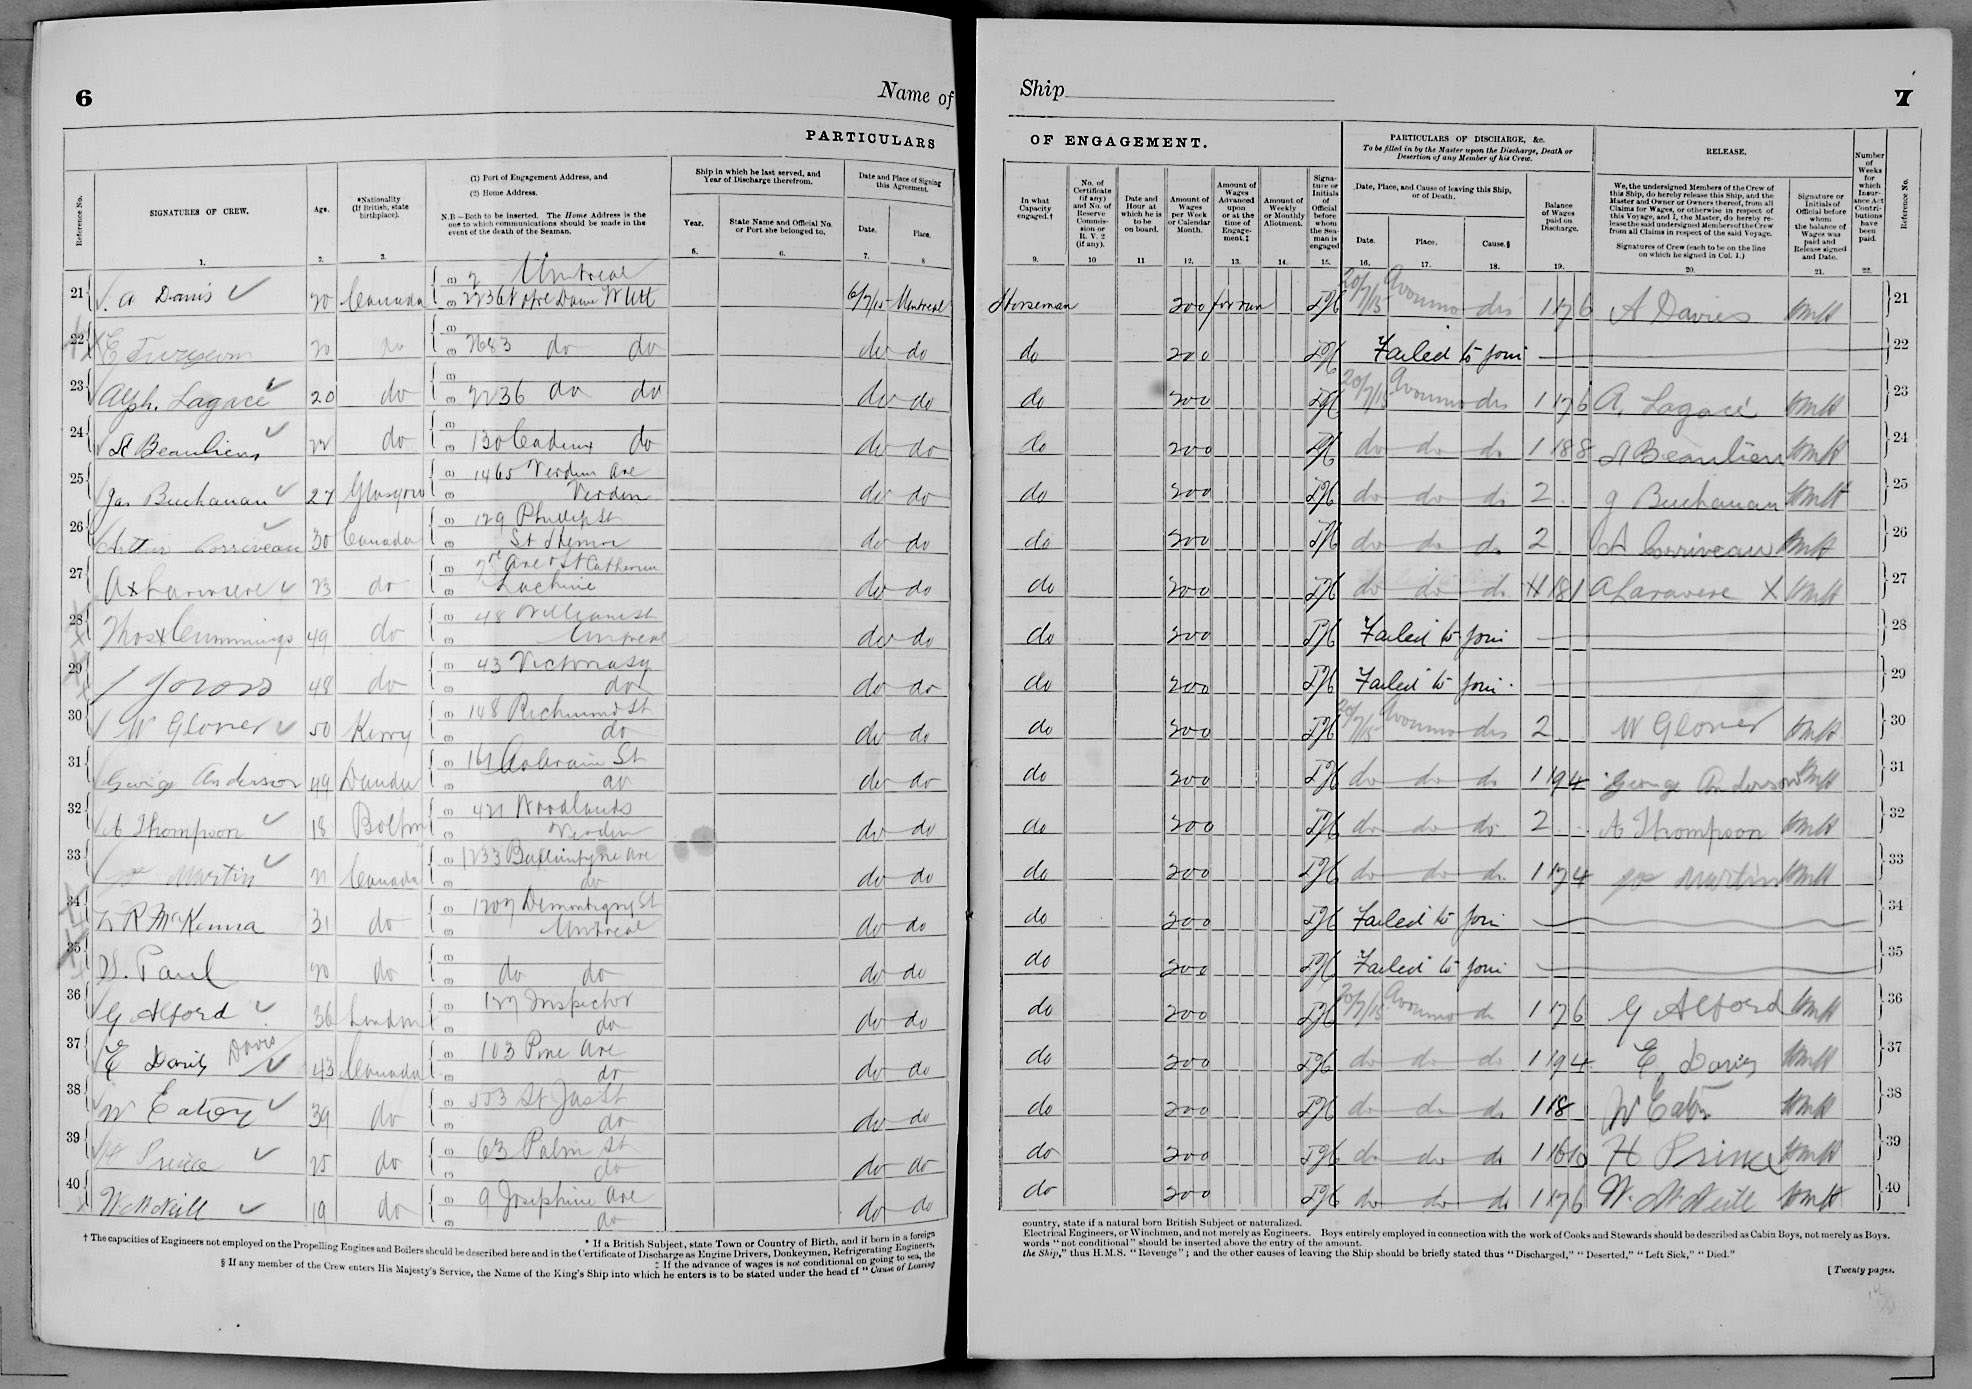 6
Name of
PARTICULARS
Reference No.
SIGNATURES OF CREW.
1.
Age.
2.
*Nationality
(If British, state
birthplace).
3.
(1) Port of Engagement Address, and
(2) Home Address.
N.B—Both to be inserted. The Home Address is the
one to which communications should be made in the
event of the death of the Seaman.
Ship in which he last served, and
Year of Discharge therefrom.
Year.
5.
State Name and Official No.
or Port she belonged to.
6.
Date and Place of Signing
this Agreement.
Date.
7.
Place.
8
21 A Davis 20 Canada (1) Montreal
(2) 2236 Notre Dame W 6/7/15 Montreal
22 E 20 do (1)
(2) 2683 do do do do
23 Alph. Lagacé 20 do (1)
(2) 2236 do do do do
24 St Beaulieu 22 do (1)
(2) 130 Cadieux do do do
25 Jas Buchanan 27 Glasgow (1) 1465 Verdun Ave
(2) Verdun do do
26 Arthur Corriveau 30 Canada (1) 129 Phillip St
(2) St do do
27 A x Laraviere 23 do (1) Ave & St Catherine
(2) Lachine do do
28 Thos x Cummings 49 do (1) 48 William St
(2) Montreal do do
29 48 do (1) 43 Victoria Sq
(2) do do do
30 W Glover 50 Kerry (1) 148 Richmond St
(2) do do do
31 George Anderson 49 Dundee (1) 161 St
(2) do do do
32 A Thompson 18 Bolton (1) 421 Woodlands
(2) Verdun do do
33 Martin 21 Canada (1) 1233 Ballantyne Ave
(2) do do do
34 R McKenna 31 do (1) 1207 Demontigny St
(2) Montreal do do
35 H. Paul 20 do (1)
(2) do do do do
36 G Alford 36 London (1) 127 Inspector
(2) do do do
37 E Davis Davis 43 Canada (1) 103 Pine Ave
(2) do do do
38 W Eaton 39 do (1) 553 St Jas St
(2) do do do
39 H Prince 25 do (1) 63 Palm St
(2) do do do
40 W. McNeill 19 do (1) 9 Josephine Ave
(2) do do do
* If a British Subject, state Town or Country of Birth, and if born in a foreign
† The capacities of Engineers not employed on the Propelling Engines and Boilers should be described here and in the Certificate of Discharge as Engine Drivers, Donkeymen, Refrigerating Engineers,
‡ If the advance of wages is not conditional on going to sea, the
§ If any member of the Crew enters His Majesty's Service, the Name of the King's Ship into which he enters is to be stated under the head of "Cause of Leaving
Ship
7
OF ENGAGEMENT.
In what
Capacity
engaged.†
9.
No. of
Certificate
(if any)
and No. of
Reserve
Commis-
sion or
R. V. 2
(if any).
10
Date and
Hour at
which he is
to be
on board.
11
Amount of
Wages
per Week
or Calendar
Month.
12.
Amount of
Wages
Advanced
upon
or at the
time of
Engage-
ment.‡
13.
Amount of
Weekly
or Monthly
Allotment.
14.
Signa-
ture or
Initials
of
Official
before
whom
the Sea-
man is
engaged
15.
PARTICULARS OF DISCHARGE, &c.
To be filled in by the Master upon the Discharge, Death or
Desertion of any Member of his Crew.
Date, Place, and Cause of leaving this Ship,
or of Death.
Date.
16.
Place.
17.
Cause.§
18.
Balance
of Wages
paid on
Discharge.
19.
RELEASE.
We, the undersigned Members of the Crew of
this Ship, do hereby release this Ship, and the
Master and Owner or Owners thereof, from all
Claims for Wages, or otherwise in respect of
this Voyage, and I, the Master, do hereby re-
lease the said undersigned Members of the Crew
from all Claims in respect of the said Voyage.
Signatures of Crew (each to be on the line
on which he signed in Col. 1.)
20.
Signature or
Initials of
Official before
whom
the balance of
Wages was
paid and
Release signed
and Date.
21.
Number
of
Weeks
for
which
Insur-
ance Act
Contri-
butions
have
been
paid.
22.
Reference No.
Horseman 200 for run 20/7/15 Avonmo dis 1 17 6 A Davies 21
do 200 Failed to join 22
do 200 20/7/15 Avonmo dis 1 17 6 A. Lagacé 23
do 200 do do do 1 18 8 St Beaulieu 24
do 200 do do do 2 J Buchanan 25
do 200 do do do 2 A Corriveau 26
do 200 do do do 18 1 A Laraviere X 27
do 200 Failed to join 28
do 200 Failed to join 29
do 200 20/7/15 Avonmo dis 2 W Glover 30
do 200 do do do 1 19 4 George Anderson 31
do 200 do do do 2 A Thompson 32
do 200 do do do 1 17 4 Martin 33
do 200 Failed to join 34
do 200 Failed to join 35
do 200 20/7/15 Avonmo do 1 17 6 G Alford 36
do 200 do do do 1 19 4 E. Davis 37
do 200 do do do 1 18 W Eaton 38
do 200 do do do 1 16 10 H Prince 39
do 200 do do do 1 17 6 W. McNeill 40
country, state if a natural born British Subject or naturalized.
Electrical Engineers, or Winchmen, and not merely as Engineers. Boys entirely employed in connection with the work of Cooks and Stewards should be described as Cabin Boys, not merely as Boys.
words "not conditional" should be inserted above the entry of the amount.
the Ship," thus H.M.S. "Revenge"; and the other causes of leaving the Ship should be briefly stated thus "Discharged," "Deserted," "Left Sick," "Died."
[Twenty pages.